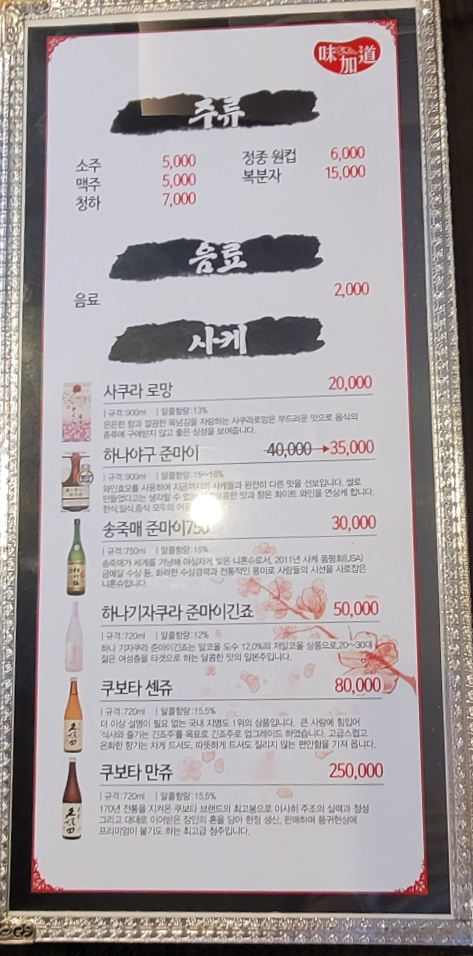 味加道
주류
소주 5,000
맥주 5,000
청하 7,000
정종 원컵 6,000
복분자 15,000
음료
음료 2,000
사케
사쿠라 로망 20,000
| 규격:900ml | 알콜함량:13%
은은한 향과 깔끔한 목넘김을 자랑하는 사쿠라로망은 부드러운 맛으로 음식의
종류에 구애받지 않고 좋은 상성을 보여줍니다.
하나야구 준마이 40,000→35,000
| 규격:900ml | 알콜함량:15~16%
와인효모를 사용하여 지금까지의 사케들과 완전히 다른 맛을 선보입니다. 쌀로
만들었다고는 생각할 수 없는 맛과 향은 화이트 와인을 연상케 합니다.
한식,일식,중식 모두와
송죽매 준마이750 30,000
| 규격:750ml | 알콜함량:15%
송죽매가 세계를 겨냥해 야심차게 빚은 니혼슈로서, 2011년 사케 품평회(USA)
금메달 수상 등, 화려한 수상경력과 전통적인 풍미로 사람들의 시선을 사로잡은
니혼슈입니다.
하나기자쿠라 준마이긴죠 50,000
| 규격:720ml | 알콜함량:12%
하나 기자쿠라 준마이긴죠는 알코올 도수 12.0%의 저알코올 상품으로,20~30대
젊은 여성층을 타겟으로 하는 달콤한 맛의 일본주입니다.
쿠보타 센쥬 80,000
| 규격:720ml | 알콜함량:15.5%
더 이상 설명이 필요 없는 국내 지명도 1위의 상품입니다. 큰 사랑에 힘입어
'식사와 즐기는 긴죠주'를 목표로 긴죠주로 업그레이드 하였습니다. 고급스럽고
온화한 향기는 차게 드셔도, 따뜻하게 드셔도 질리지 않는 편안함을 가져 옵니다.
쿠보타 만쥬 250,000
| 규격:720ml | 알콜함량:15.5%
170년 전통을 지켜온 쿠보타 브랜드의 최고봉으로 아사히 주조의 실력과 정성
그리고 대대로 이어받은 장인의 혼을 담아 한정 생산, 판매하며 품귀현상에
프리미엄이 붙기도 하는 최고급 청주입니다.
久保田
久保田